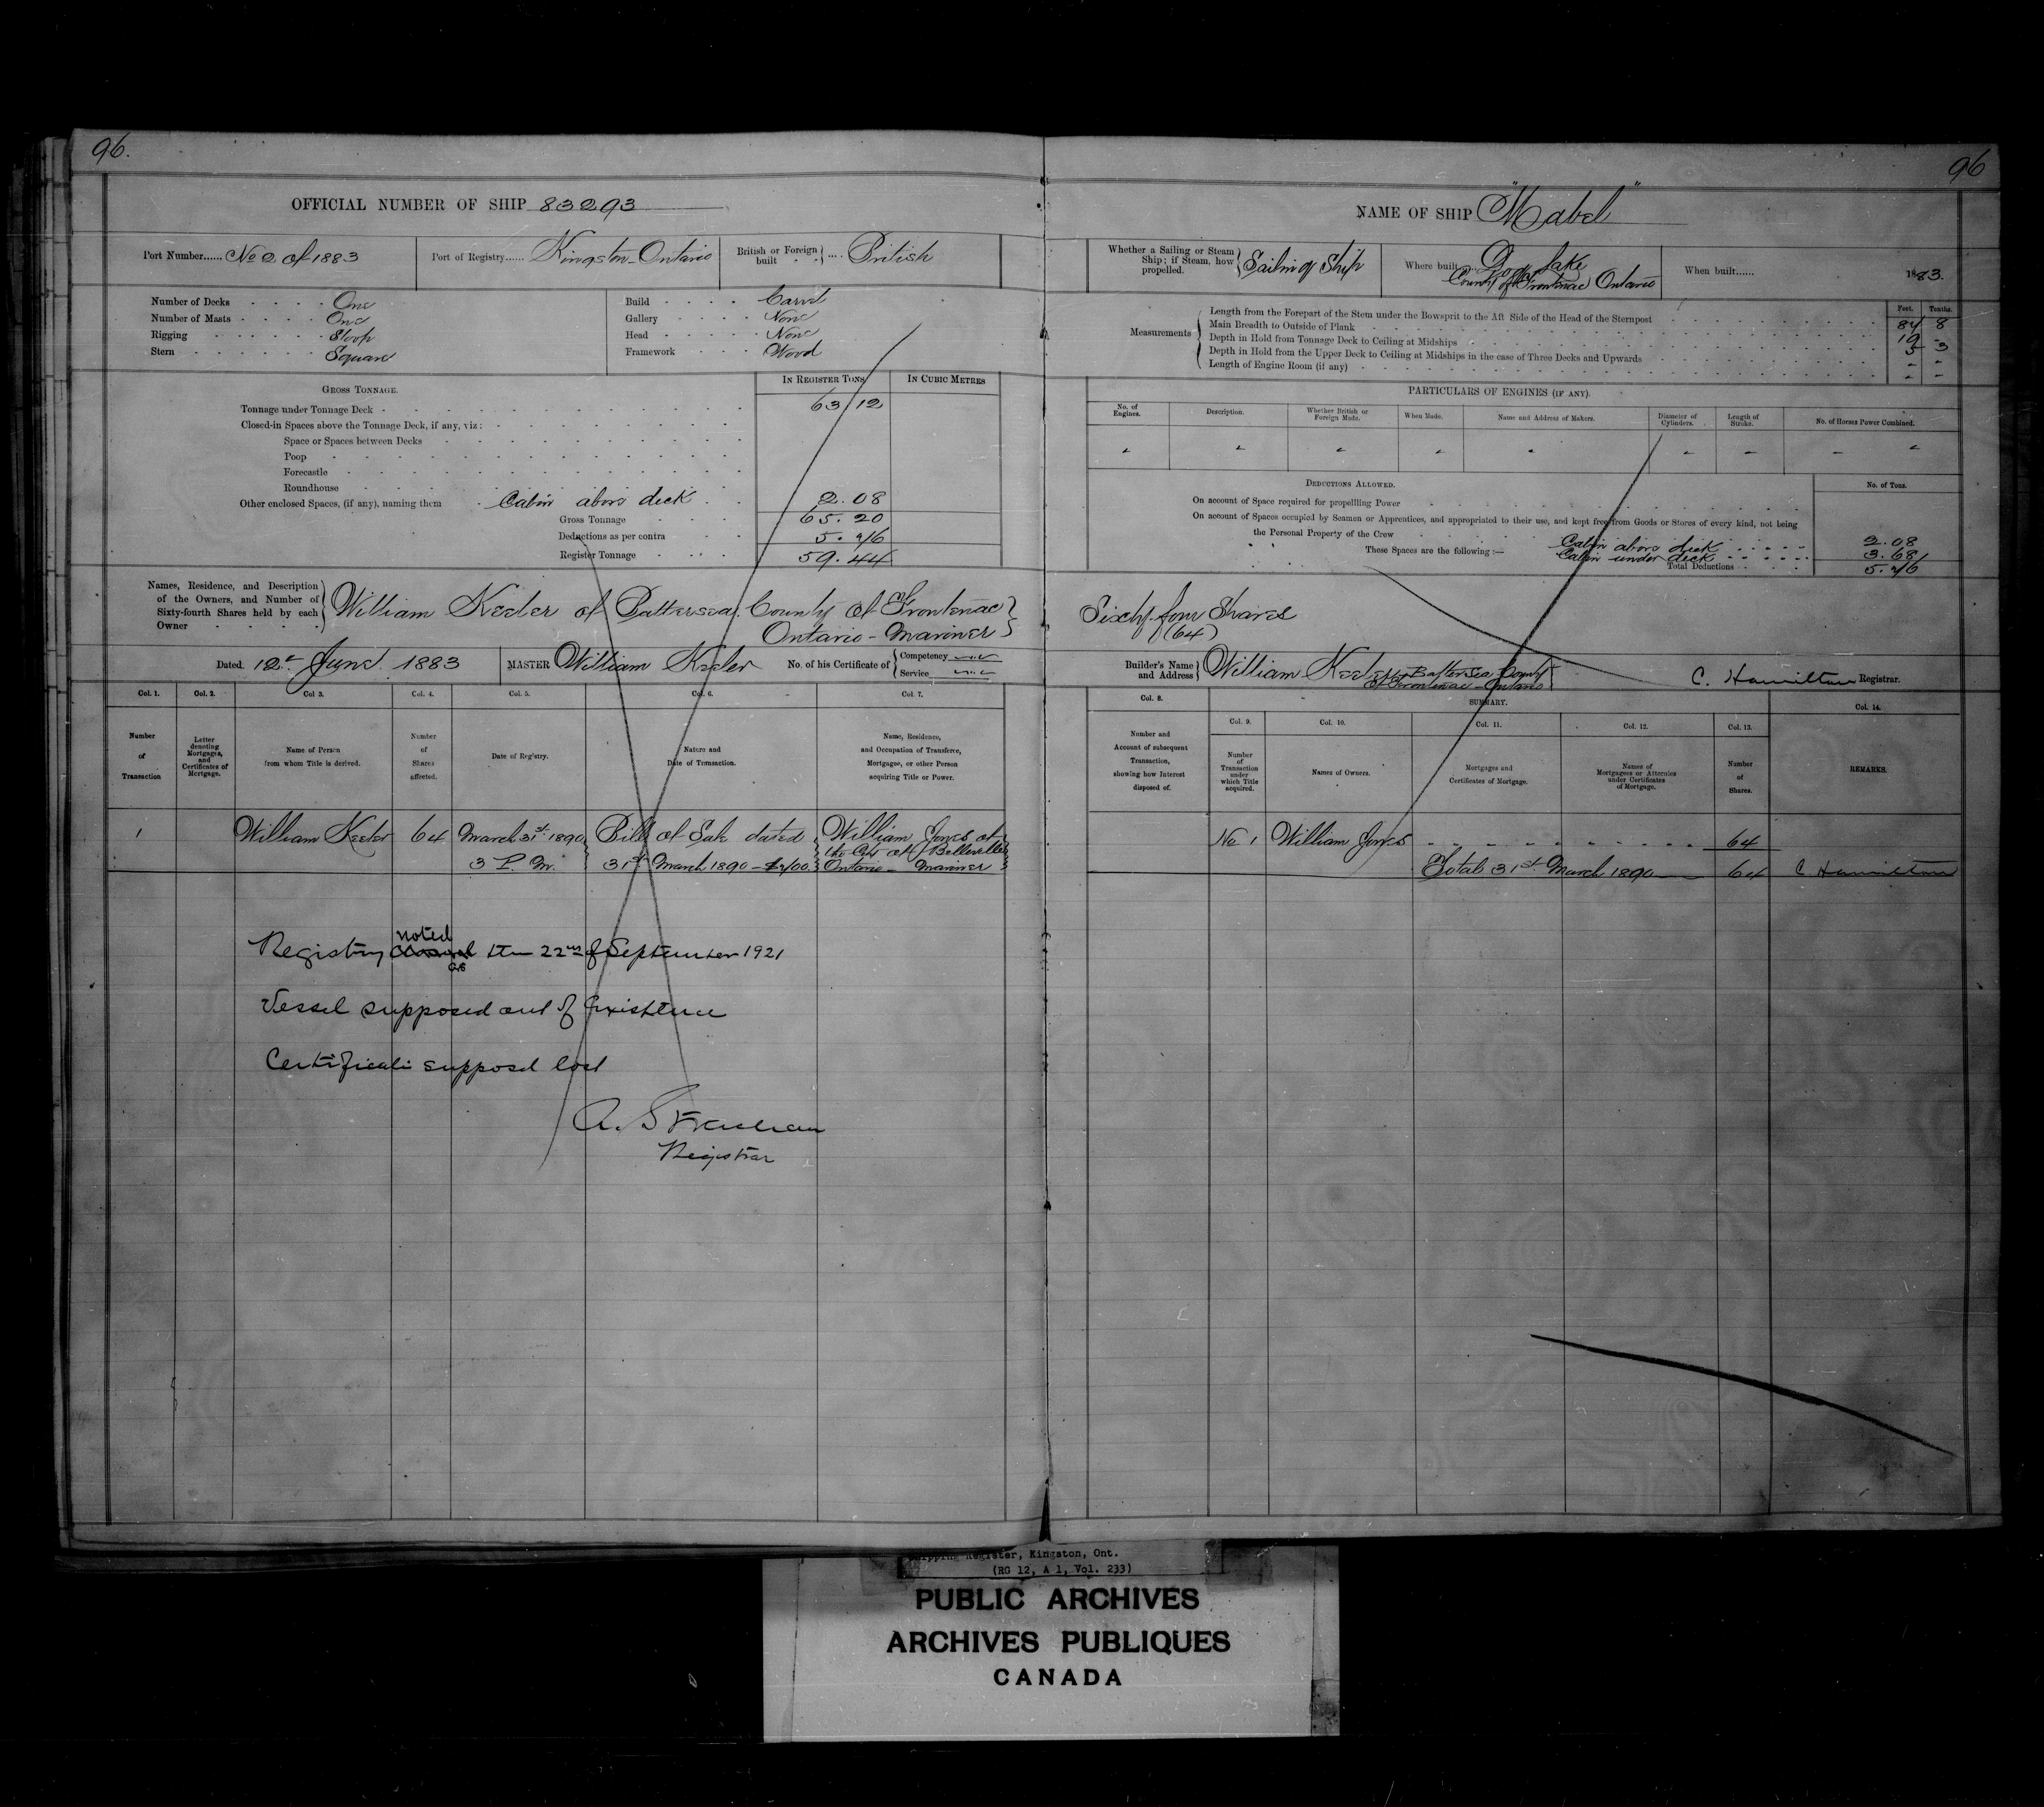 96.
OFFICIAL NUMBER OF SHIP 83293
Port Number...... No 2 of 1883
Port of Registry...... Kingston - Ontario
British or Foreign built .... British
Number of Decks One
Number of Masts One
Rigging Sloop
Stern Square
Build Carvel
Gallery None
Head None
Framework Wood
GROSS TONNAGE.
IN REGISTER TONS
IN CUBIC METRES
Tonnage under Tonnage Deck 63/12
Closed-in Spaces above the Tonnage Deck, if any, viz:
Space or Spaces between Decks
Poop
Forecastle
Roundhouse
Other enclosed Spaces, (if any), naming them Cabin above deck 2.08
Gross Tonnage 65.20
Deductions as per contra 5.76
Register Tonnage 59.44
Names, Residence, and Description
of the Owners, and Number of
Sixty-fourth Shares held by each
Owner
William Keeler of Battersea. County of Frontenac
Ontario - Mariner
Dated 12th June 1883
MASTER William Keeler
No. of his Certificate of
Competency
Service
Col. 1.
Col. 2.
Col 3.
Col. 4.
Col. 5.
Col. 6.
Col. 7.
Number of Transaction
Letter denoting Mortgages, and Certificates of Mortgage.
Name of Person from whom Title is derived.
Number of Shares affected.
Date of Registry.
Nature and Date of Transaction.
Name, Residence, and Occupation of Transferee, Mortgagee, or other Person acquiring Title or Power.
1 William Keeler 64 March 31st 1890 Bill of Sale dated William Jones of
the City of Belleville
3 P.M. 31st March 1890 - $700. Ontario - Mariner
noted
Registry the 22nd of September 1921
Vessel supposed out of existence
Certificate supposed lost
Registrar
96
NAME OF SHIP "Mabel"
Whether a Sailing or Steam Ship; if Steam, how propelled. Sailing Ship
Where built Dog Lake
County of Frontenac Ontario
When built...... 1883.
Measurements
Feet. Tenths.
Length from the Forepart of the Stem under the Bowsprit to the Aft Side of the Head of the Sternpost 84 8
Main Breadth to Outside of Plank 19 -
Depth in Hold from Tonnage Deck to Ceiling at Midships 5 3
Depth in Hold from the Upper Deck to Ceiling at Midships in the case of Three Decks and Upwards - -
Length of Engine Room (if any) - -
PARTICULARS OF ENGINES (IF ANY).
No. of Engines.
Description.
Whether British or Foreign Made.
When Made.
Name and Address of Makers.
Diameter of Cylinders.
Length of Stroke.
No. of Horses Power Combined.
DEDUCTIONS ALLOWED.
No. of Tons.
On account of Space required for propellling Power
On account of Spaces occupied by Seamen or Apprentices, and appropriated to their use, and kept free from Goods or Stores of every kind, not being
the Personal Property of the Crew
These Spaces are the following :—
Cabin above deck 2.08
Cabin under deck 3.68
Total Deductions 5.76
Sixty-four Shares
(64)
Builder's Name and Address William Keeler Battersea County
of Frontenac - Ontario
C. Hamilton Registrar.
Col. 8.
SUMMARY.
Col. 14.
Col. 9.
Col. 10.
Col. 11.
Col. 12.
Col. 13.
Number and Account of subsequent Transaction, showing how Interest disposed of.
Number of Transaction under which Title acquired.
Names of Owners.
Mortgages and Certificates of Mortgage.
Names of Mortgagees or Attornies under Certificates of Mortgage.
Number of Shares.
REMARKS.
No 1 William Jones 64
Total 31st March 1890 64 C Hamilton
Shipping Register, Kingston, Ont.
(RG 12, A 1, Vol. 233)
PUBLIC ARCHIVES
ARCHIVES PUBLIQUES
CANADA